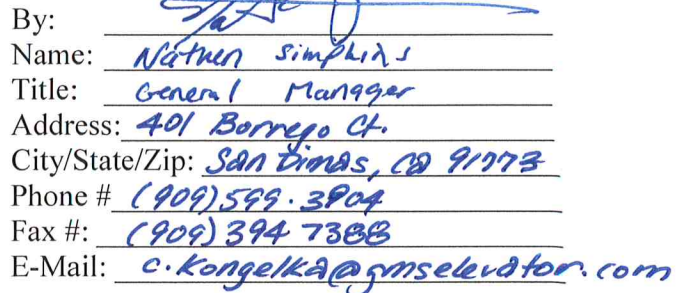 By:
Name: Nathen Simpkins
Title: General Manager
Address: 401 Borrego Ct.
City/State/Zip: San Dimas, CA 91773
Phone # (909) 599.3904
Fax #: (909) 394 7388
E-Mail: c.kongelka@gmselevator.com